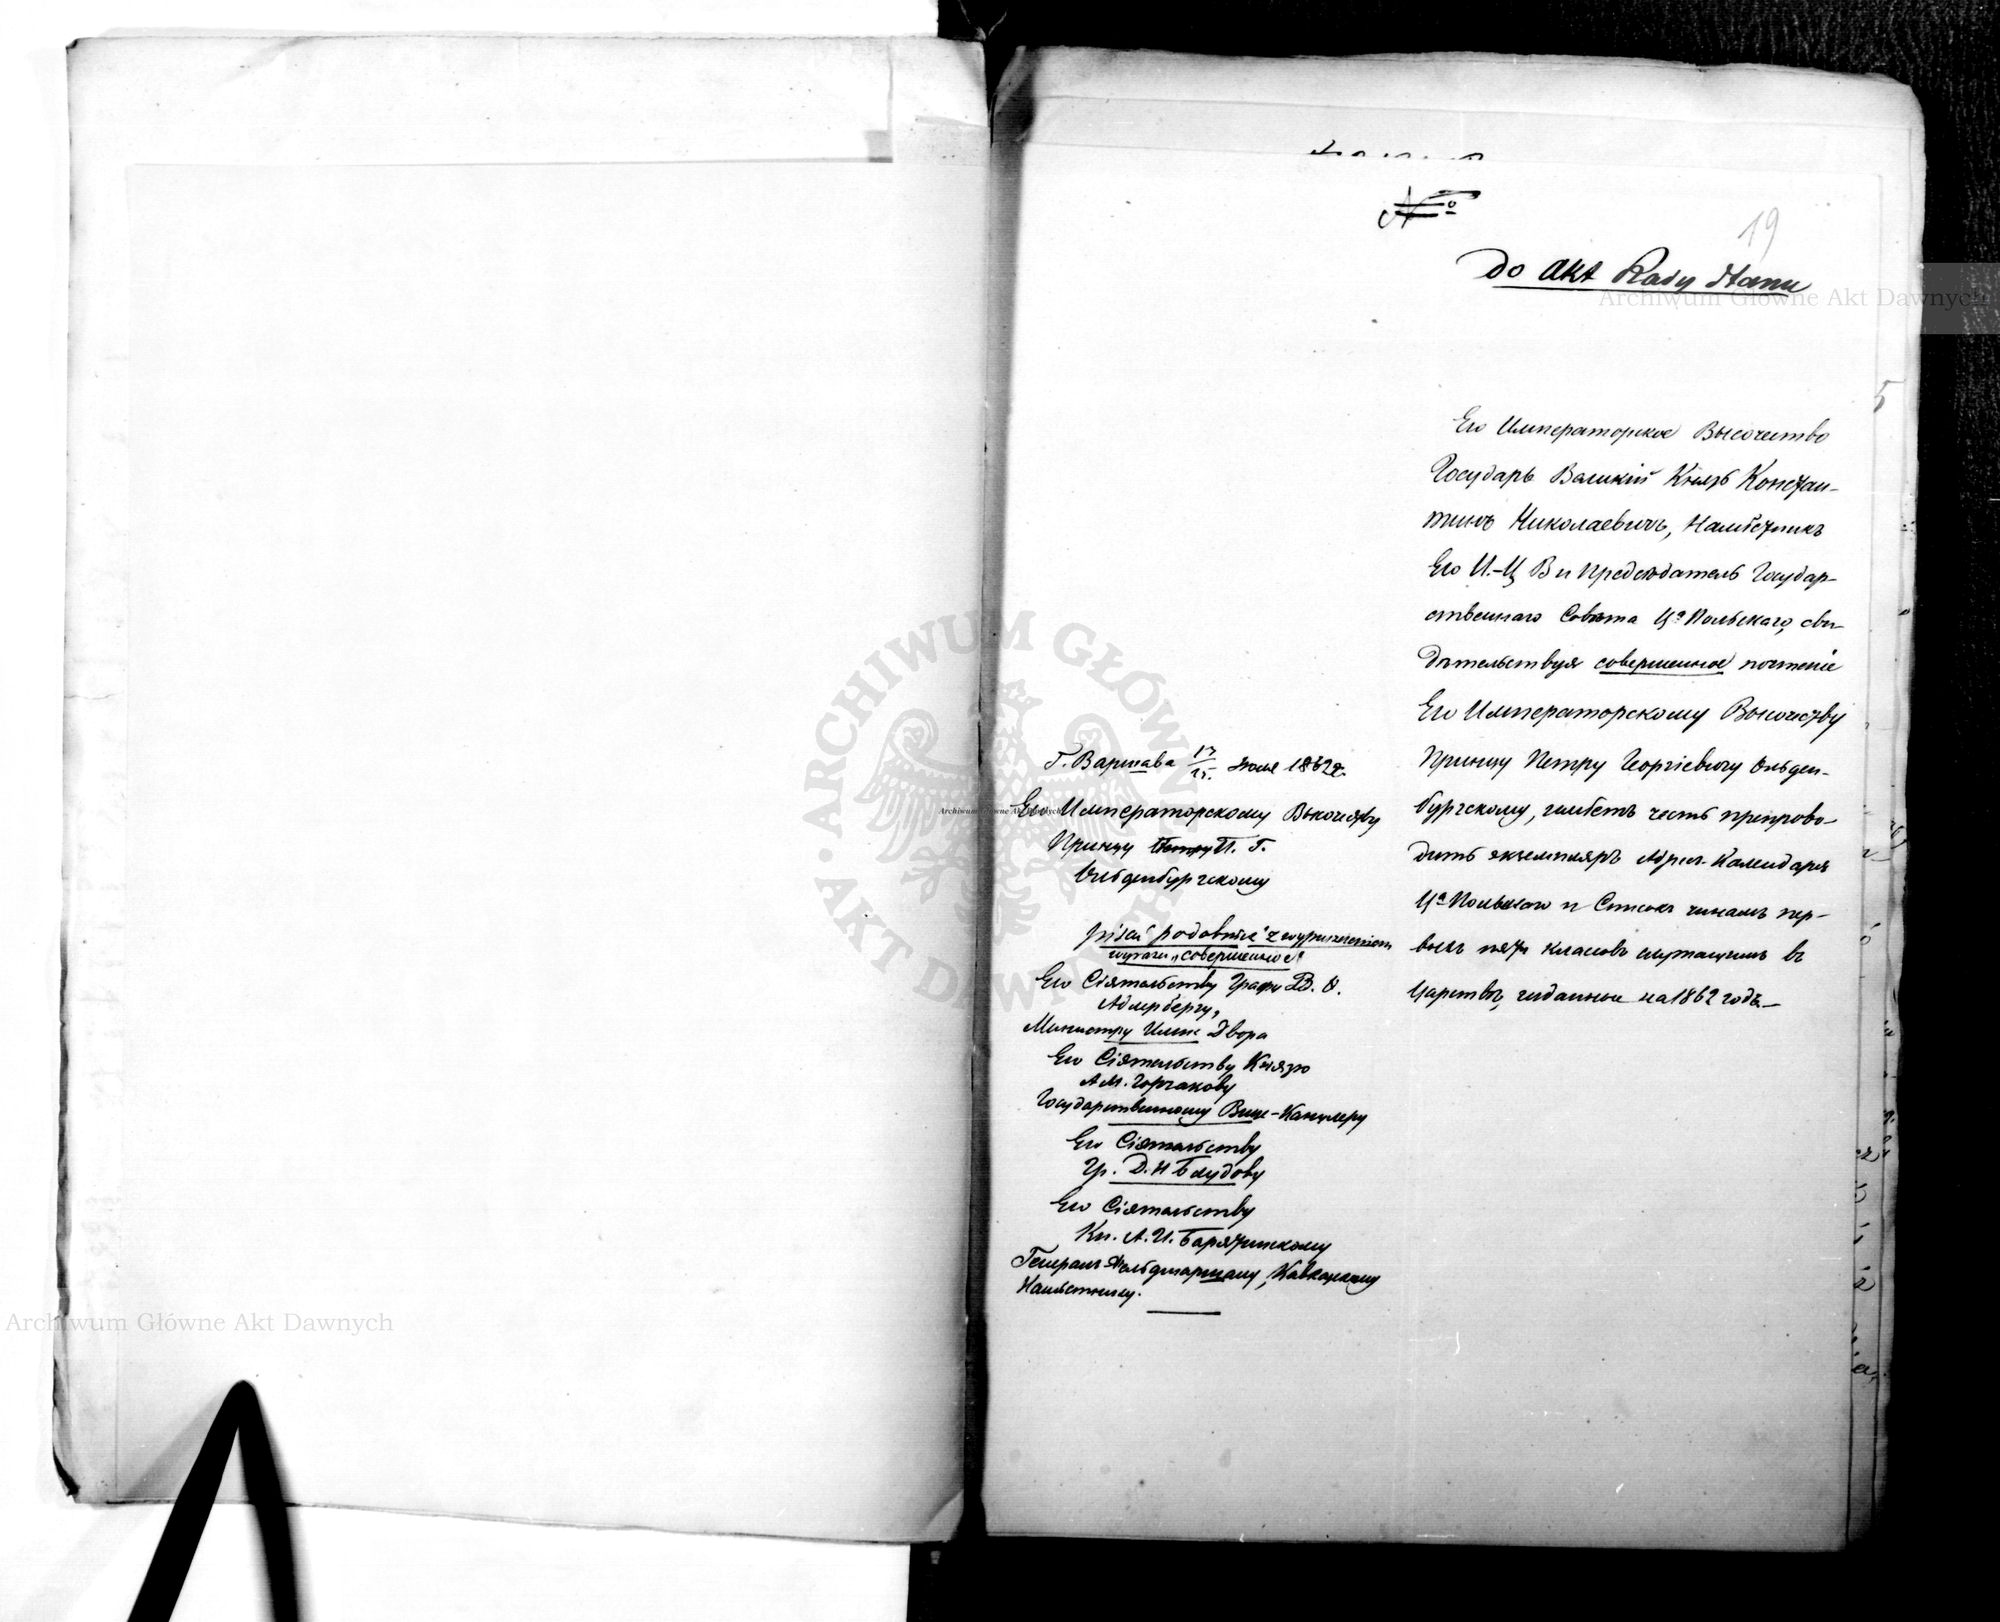 №
19
do Akt Rady Stanu
Его Императорское Высочество
Государь Великій Князь Констан-
тинъ Николаевичъ, Намѣстникъ
Его И.-Ц В и Предсѣдатель Государ-
ственнаго Совѣта Ца Польскаго, сви-
дѣтельствуя совершенное почтеніе
Его Императорскому Высочеству
Принцу Петру Георгіевичу Ольден-
бургскому, имѣетъ честь препрово-
дить экземпляръ Адрес-Календаря
Ца Польскаго и Списокъ чинамъ пер-
выхъ пяти классовъ служащимъ въ
Царствѣ, изданные на 1862 годъ.—
Г. Варшава 13/25. Іюля 1862 г.
Его Императорскому Высочеству
Принцу Петру П. Г.
Ольденбургскому
pisać podobnie z wypuszczeniem
wyrazu „совершенное"
Его Сіятельству Графу В. Ѳ.
Адлербергу,
Министру Импе Двора
Его Сіятельству Князю
А М. Горчакову
Государственному Вице-Канцлеру
Его Сіятельству
Гр. Д. Н Блудову
Его Сіятельству
Кн. А. И. Барятинскому
Генералъ Фельдмаршалу, Кавказскому
Намѣстнику.
Archiwum Główne Akt Dawnych
Archiwum Główne Akt Dawnych
Archiwum Główne Akt Dawnych
ARCHIWUM GŁÓWNE AKT DAWNYCH